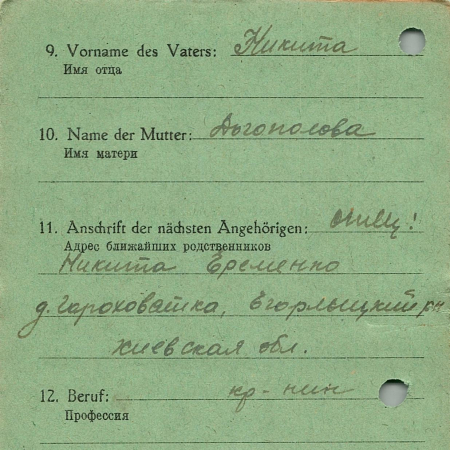 9. Vorname des Vaters: Никита
Имя отца
10. Name der Mutter: Дьгополова
Имя матери
11. Anschrift der nächsten Angehörigen: отец!
Адрес ближайших родственников
Никита Еременко
д. Гороховатка, Егорлыцкий рн
Киевская обл.
12. Beruf: кр-нин
Профессия